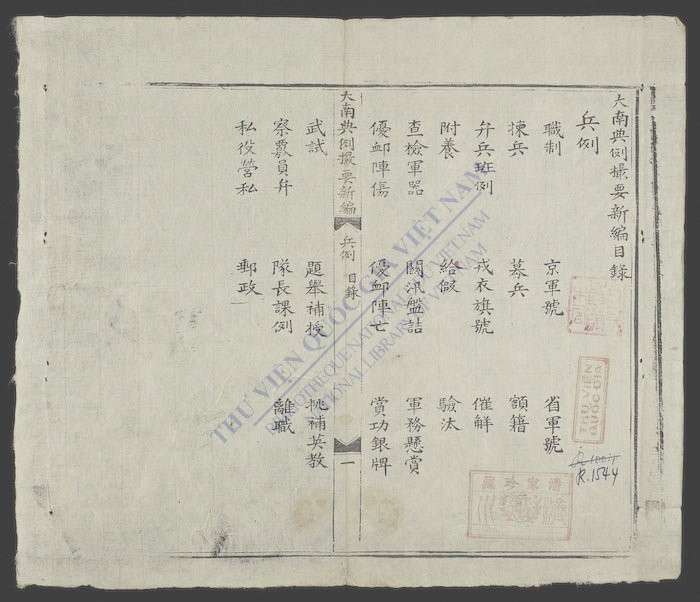 大南典例撮要新編目錄
兵例
職制 京軍號 省軍號
揀兵 募兵 額籍
弁兵班例 戎衣旗號 催觧
附養 給假 驗汰
查檢軍器 關汛盤詰 軍務懸賞
優卹陣傷 優卹陣亡 賞功銀牌
大南典例撮要新編 兵例 目錄 一
武試 題舉補授 挑補英教
察覈員弁 隊長課例 離職
私役營私 郵政
THƯ VIỆN QUỐC GIA VIỆT NAM
BIBLIOTHÈQUE NATIONALE DU VIETNAM
NATIONAL LIBRARY OF VIETNAM
THƯ VIỆN
QUỐC GIA
R.1544
家珍藏